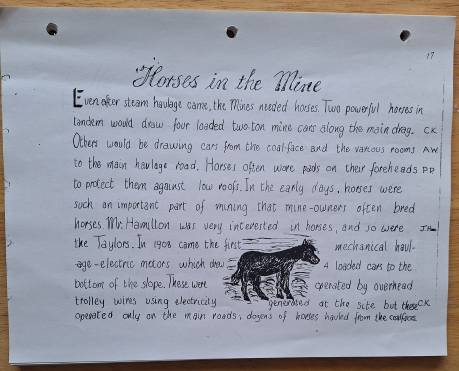 17
Horses in the Mine
Even after steam haulage came, the Mines needed horses. Two powerful horses in
tandem would draw four loaded two-ton mine cars along the main drag. C.K.
Others would be drawing cars from the coal-face and the various rooms A.W
to the main haulage road. Horses often wore pads on their foreheads P.D
to protect them against low roofs. In the early days, horses were
such an important part of mining that mine-owners often bred
horses. Mr. Hamilton was very interested in horses, and so were J.H.
the Taylors. In 1908 came the first mechanical haul-
age-electric motors which drew 4 loaded cars to the
bottom of the slope. These were operated by overhead
trolley wires using electricity generated at the site but these C.K.
operated only on the main roads, dozens of horses hauled from the coalface.